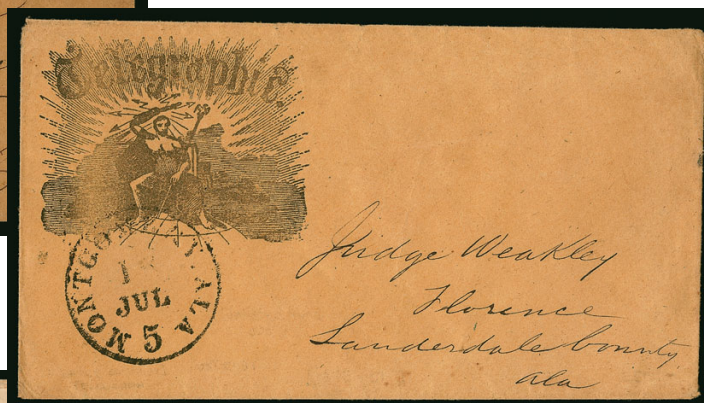 Telegraphic.
MONTGOMERY ALA
JUL
5
Judge Weakley
Florence
Lauderdale County
Ala